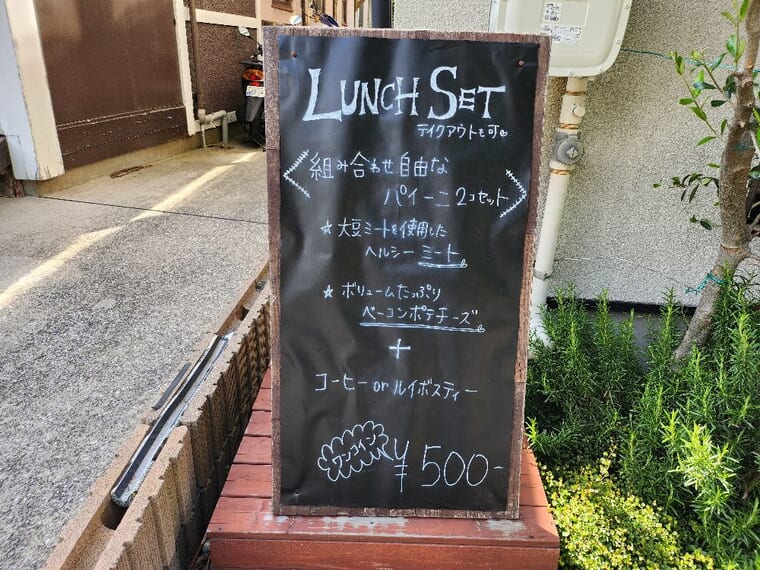 LUNCH SET
テイクアウトも可
組み合わせ自由な
パイーニ2コセット
★ 大豆ミートを使用した
ヘルシーミート
★ ボリュームたっぷり
ベーコンポテチーズ
+
コーヒー or ルイボスティー
ワンコイン ¥500-